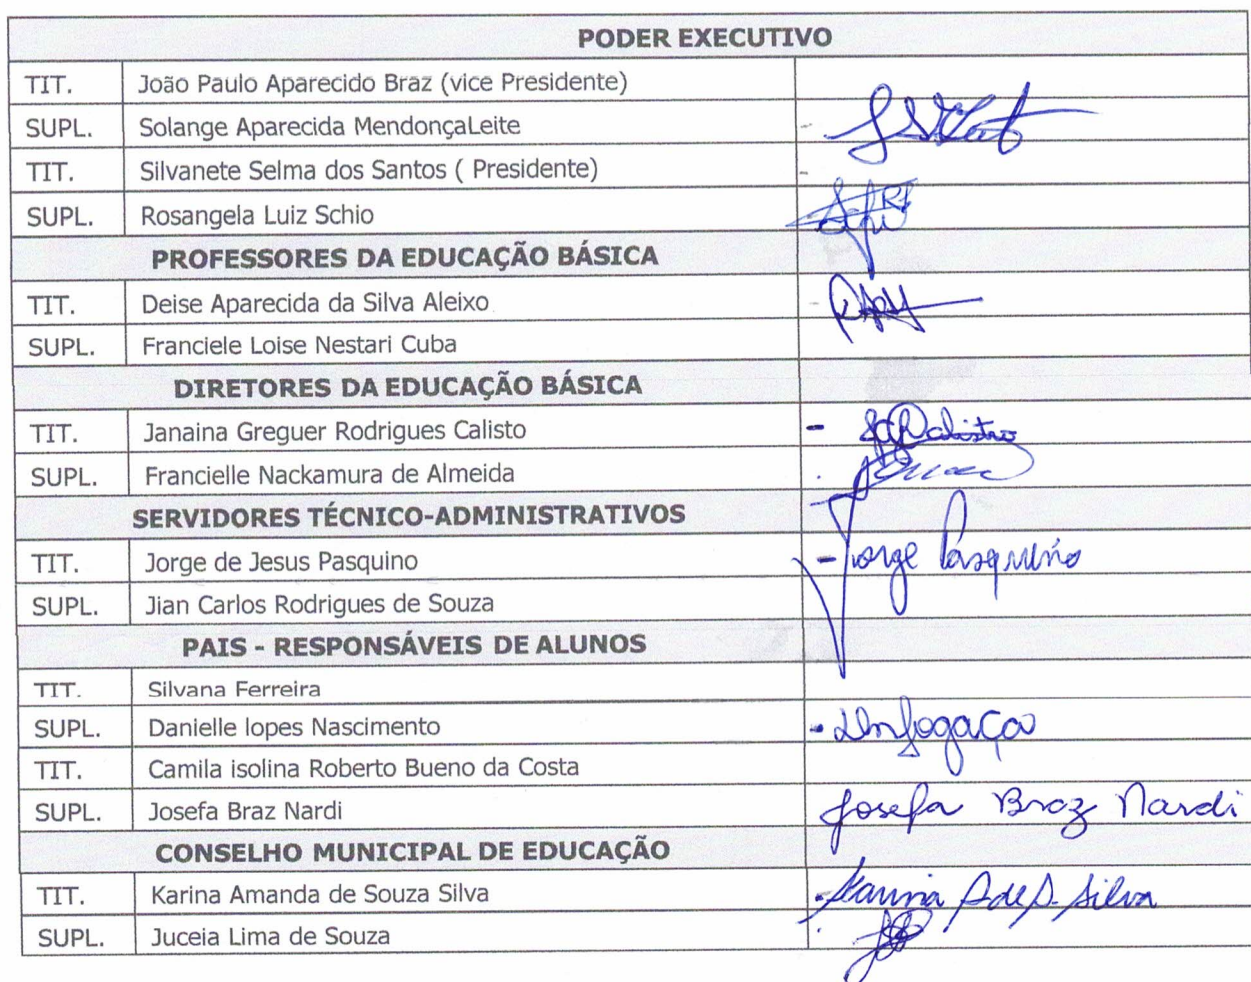 PODER EXECUTIVO
TIT. João Paulo Aparecido Braz (vice Presidente)
SUPL. Solange Aparecida MendonçaLeite
TIT. Silvanete Selma dos Santos ( Presidente)
SUPL. Rosangela Luiz Schio
PROFESSORES DA EDUCAÇÃO BÁSICA
TIT. Deise Aparecida da Silva Aleixo
SUPL. Franciele Loise Nestari Cuba
DIRETORES DA EDUCAÇÃO BÁSICA
TIT. Janaina Greguer Rodrigues Calisto
SUPL. Francielle Nackamura de Almeida
SERVIDORES TÉCNICO-ADMINISTRATIVOS
TIT. Jorge de Jesus Pasquino - Jorge Pasquino
SUPL. Jian Carlos Rodrigues de Souza
PAIS - RESPONSÁVEIS DE ALUNOS
TIT. Silvana Ferreira
SUPL. Danielle lopes Nascimento
TIT. Camila isolina Roberto Bueno da Costa
SUPL. Josefa Braz Nardi Josefa Braz Nardi
CONSELHO MUNICIPAL DE EDUCAÇÃO
TIT. Karina Amanda de Souza Silva Karina A de S. Silva
SUPL. Juceia Lima de Souza